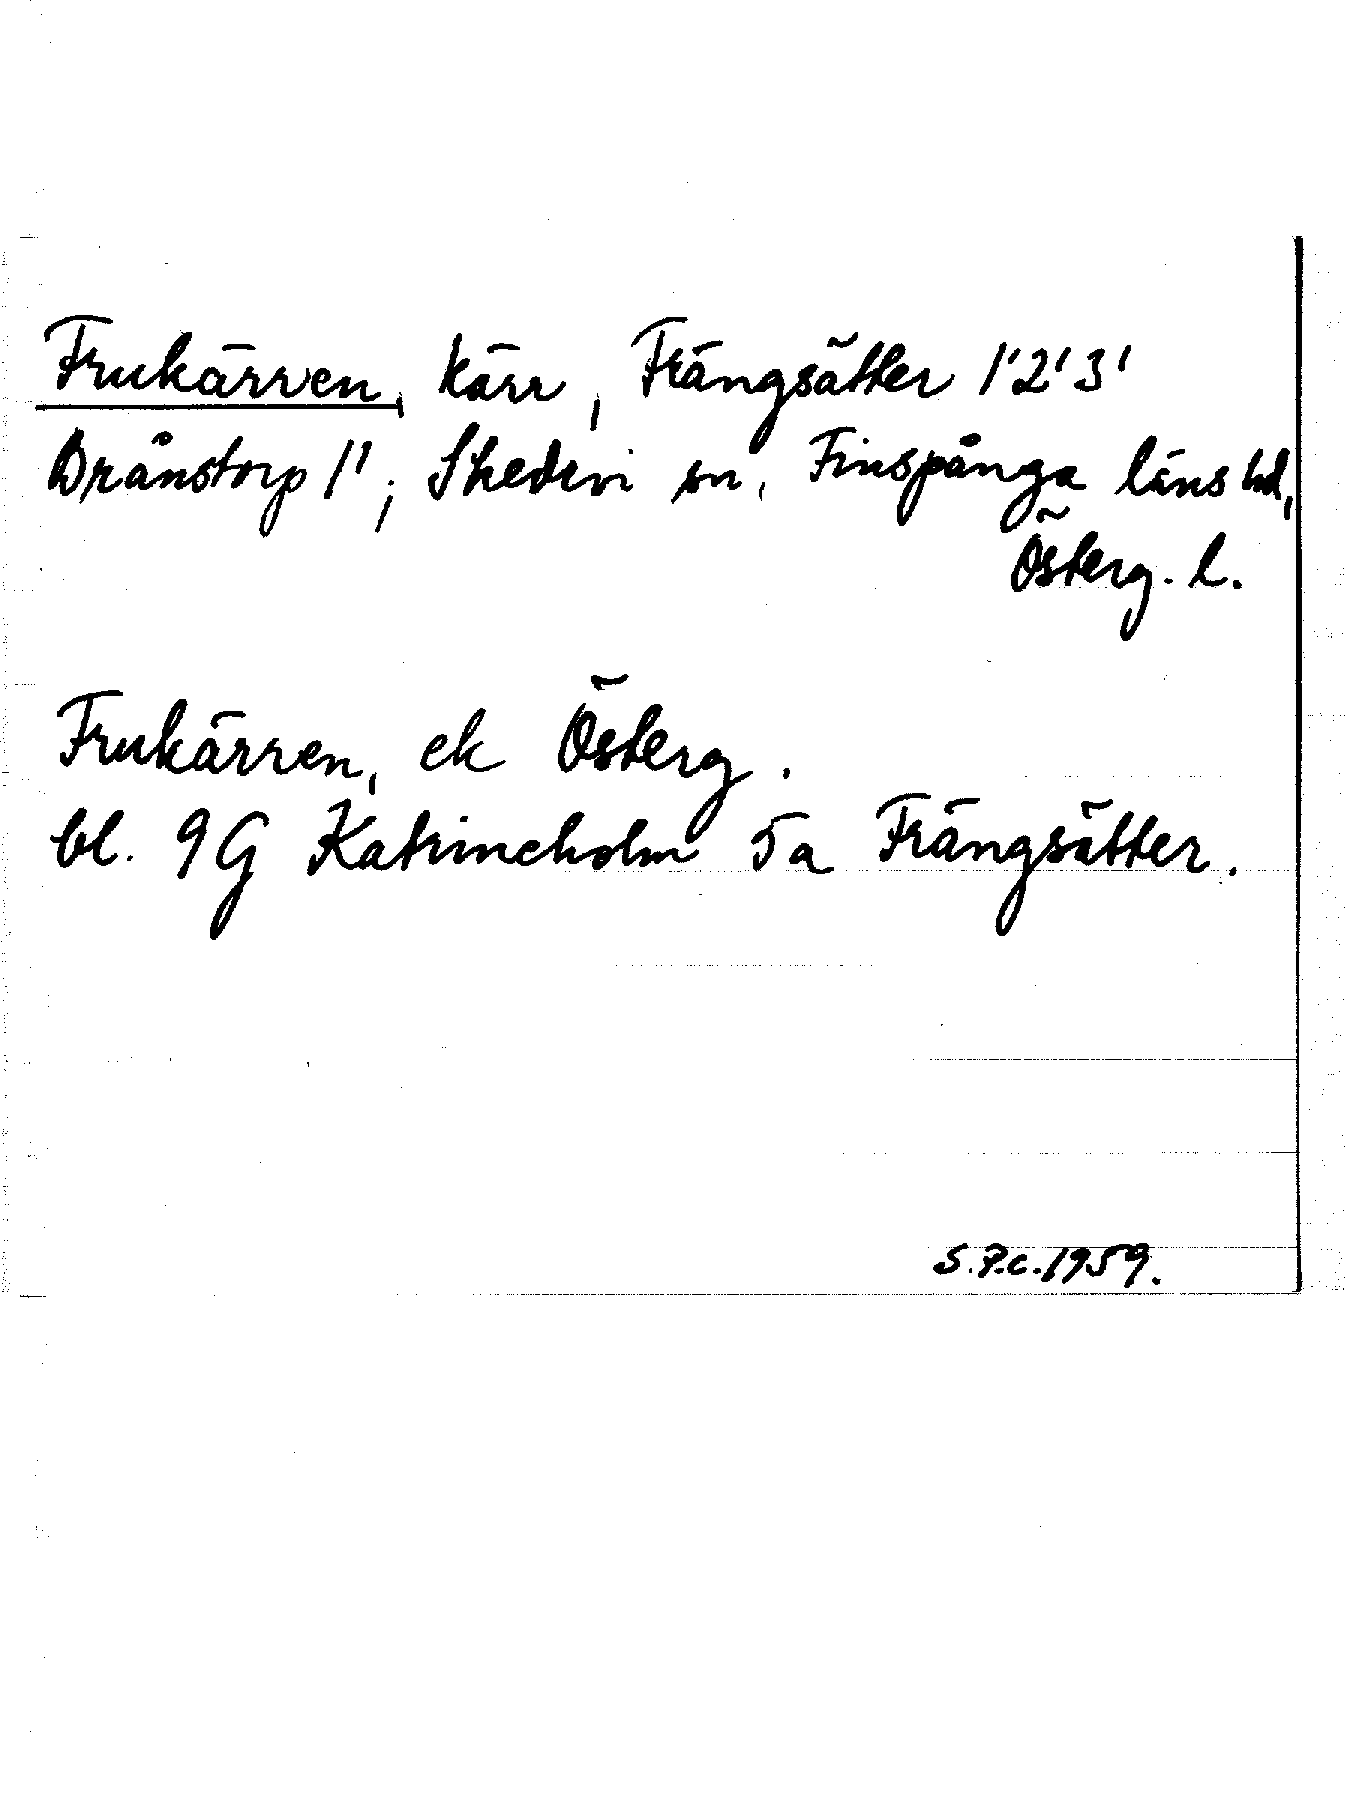 Frukärren, kärr, Frängsätter 1'2'3'
Drånstorp 1'; Skedevi sn, Finspånga läns hd,
Österg. l.
Frukärren, ek Österg.
bl. 9G Katrineholm 5a Frängsätter.
S.P.C. 1959.